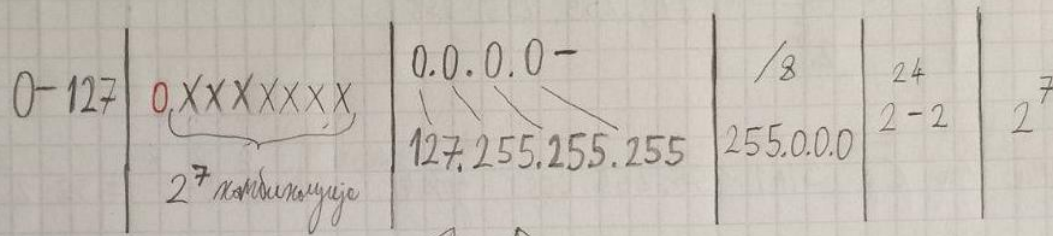 0-127
0.XXXXXXX
2⁷ комбинације
0.0.0.0-
127.255.255.255
/8
255.0.0.0
2²⁴-2
2⁷